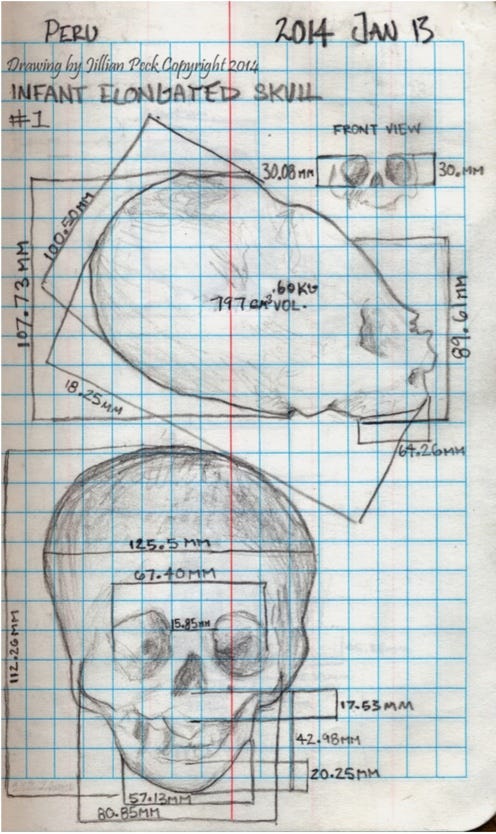 PERU
2014 JAN 13
Drawing by Jillian Peck Copyright 2014
INFANT ELONGATED SKULL
#1
FRONT VIEW
30.08MM
30.MM
100.50MM
107.73MM
.60KG
797 CM³ VOL.
89.61MM
18.25MM
64.26MM
125.5 MM
67.40MM
15.85MM
112.26 MM
17.53MM
42.98MM
20.25MM
57.13MM
80.85MM